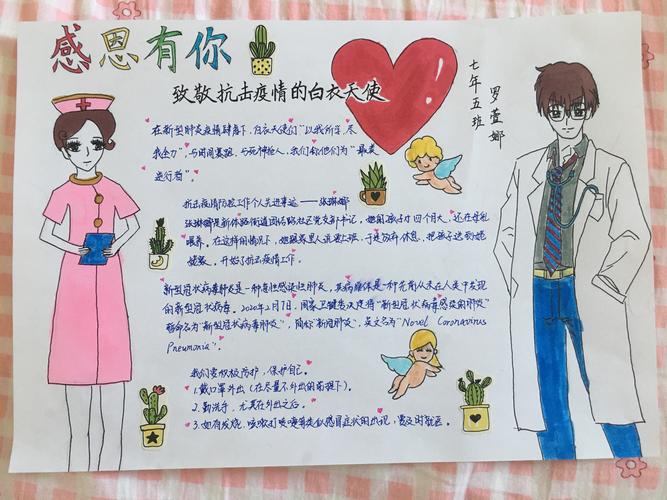 感恩有你
致敬抗击疫情的白衣天使
七年五班
罗萱娜
在新型肺炎疫情肆虐下，白衣天使们“以我所学，尽
我全力”，与时间赛跑，与死神抢人，我们称他们为“最美
逆行者”。
抗击疫情防控工作个人先进事迹——张琳娜
张琳娜是新体路街道团结路社区党支部书记，她的孩子才四个月大，还在母乳
喂养。在这样的情况下，她跟家里人说要上班，于是放弃休息，把孩子送到姥
姥家，开始了抗击疫情工作。
新型冠状病毒肺炎是一种急性感染性肺炎，其病原体是一种先前从未在人类中发现
的新型冠状病毒。2020年2月7日，国家卫健委决定将“新型冠状病毒感染的肺炎”
暂命名为“新型冠状病毒肺炎”，简称“新冠肺炎”，英文名为“Novel Coronavirus
Pneumonia”。
我们要积极防护，保护自己。
1.戴口罩外出（在尽量不外出的前提下）。
2.勤洗手，尤其在外出之后。
3.如有发烧、咳嗽打喷嚏等类似感冒症状的出现，要及时就医。